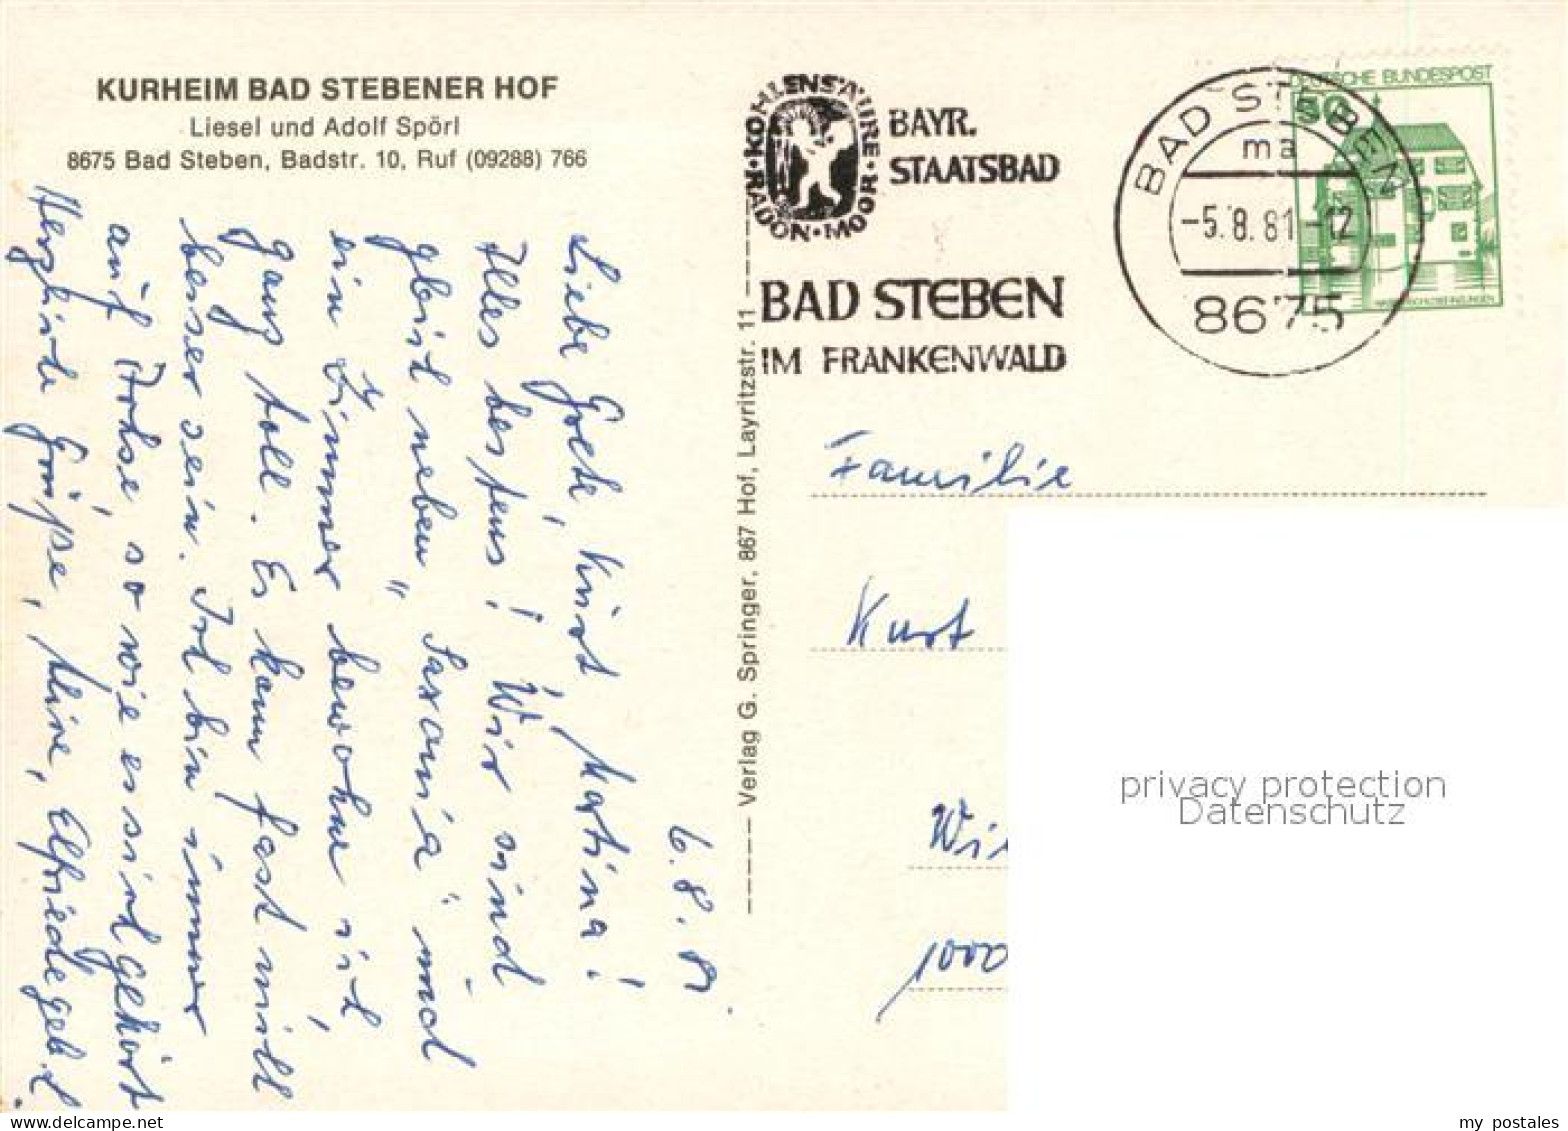 KURHEIM BAD STEBENER HOF
Liesel und Adolf Spörl
8675 Bad Steben, Badstr. 10, Ruf (09288) 766
6.8.81.
Liebe Grete, Kurt, Martina!
Alles bestens! Wir sind
gleich neben „Saxonia“ und
ein Zimmer bewohne ich,
ganz toll. Es kann fast nicht
besser sein. Ich bin immer
auf Achse, so wie es sich gehört
Herzliche Grüße, Eure, Elfriede
Verlag G. Springer, 867 Hof, Layritzstr. 11
KOHLENSÄURE · MOOR · RADON ·
BAYR.
STAATSBAD
BAD STEBEN
IM FRANKENWALD
BAD STEBEN
ma
-5.8.81-12
8675
DEUTSCHE BUNDESPOST
50
Familie
Kurt
Wi
1000
privacy protection
Datenschutz
my postales